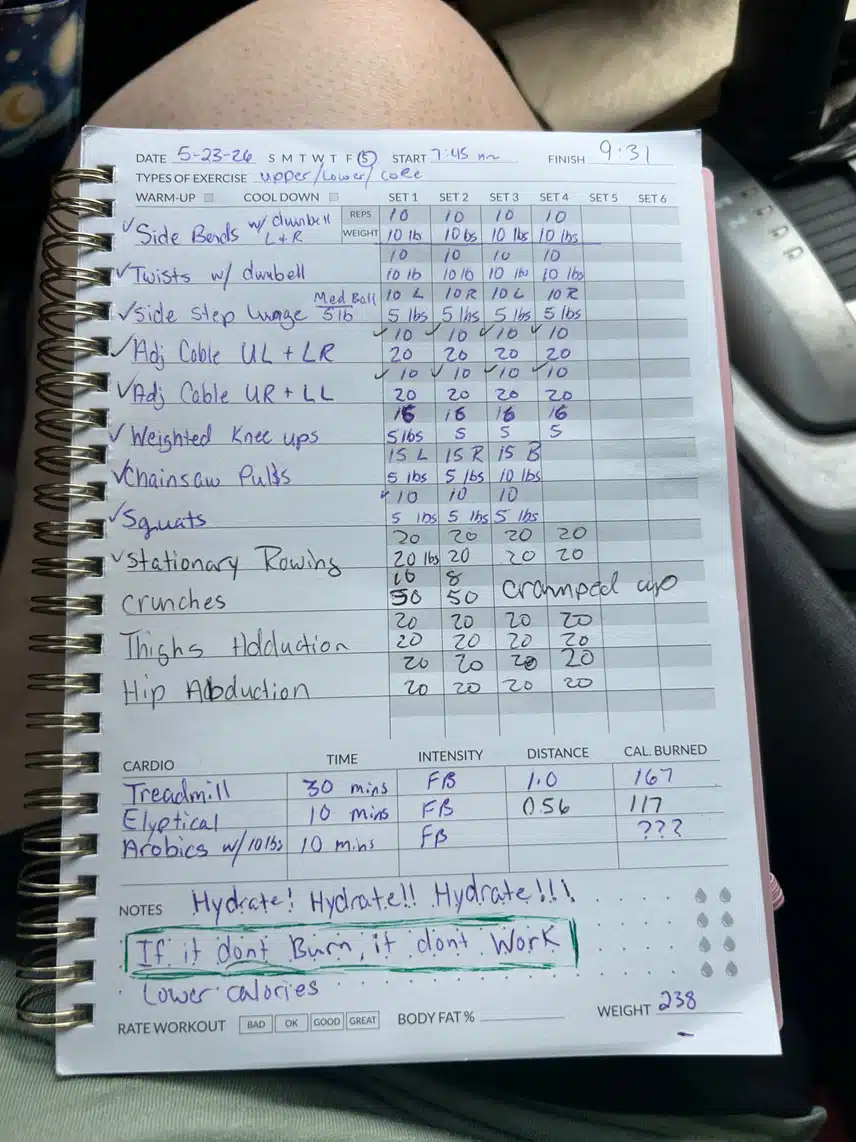 DATE 5-23-26 S M T W T F S START 7:45 FINISH 9:31
TYPES OF EXERCISE upper/Lower/core
WARM-UP COOL DOWN SET 1 SET 2 SET 3 SET 4 SET 5 SET 6
REPS 10 10 10 10
Side Bends w/ dumbell L+R WEIGHT 10 lb 10 lbs 10 lbs 10 lbs
10 10 10 10
Twists w/ dumbell 10 lb 10 lb 10 lbs 10 lbs
Med Ball 10 L 10 R 10 L 10 R
Side Step Lunge 5lb 5 lbs 5 lbs 5 lbs 5 lbs
10 10 10 10
Adj Cable UL + LR 20 20 20 20
10 10 10 10
Adj Cable UR + LL 20 20 20 20
16 16 16 16
Weighted Knee ups 5 lbs 5 5 5
15 L 15 R 15 B
Chainsaw Pulls 5 lbs 5 lbs 10 lbs
10 10 10
Squats 5 lbs 5 lbs 5 lbs
20 20 20 20
Stationary Rowing 20 lbs 20 20 20
8 cramped up
Crunches 50 50
20 20 20 20
Thighs Adduction 20 20 20 20
20 20 20 20
Hip Abduction 20 20 20 20
CARDIO TIME INTENSITY DISTANCE CAL. BURNED
Treadmill 30 mins FB 1.0 167
Elyptical 10 mins FB 0.56 117
Arobics w/10lbs 10 mins FB ???
NOTES Hydrate! Hydrate!! Hydrate!!!
If it dont Burn, it dont Work
Lower calories
RATE WORKOUT BAD OK GOOD GREAT BODY FAT % WEIGHT 238